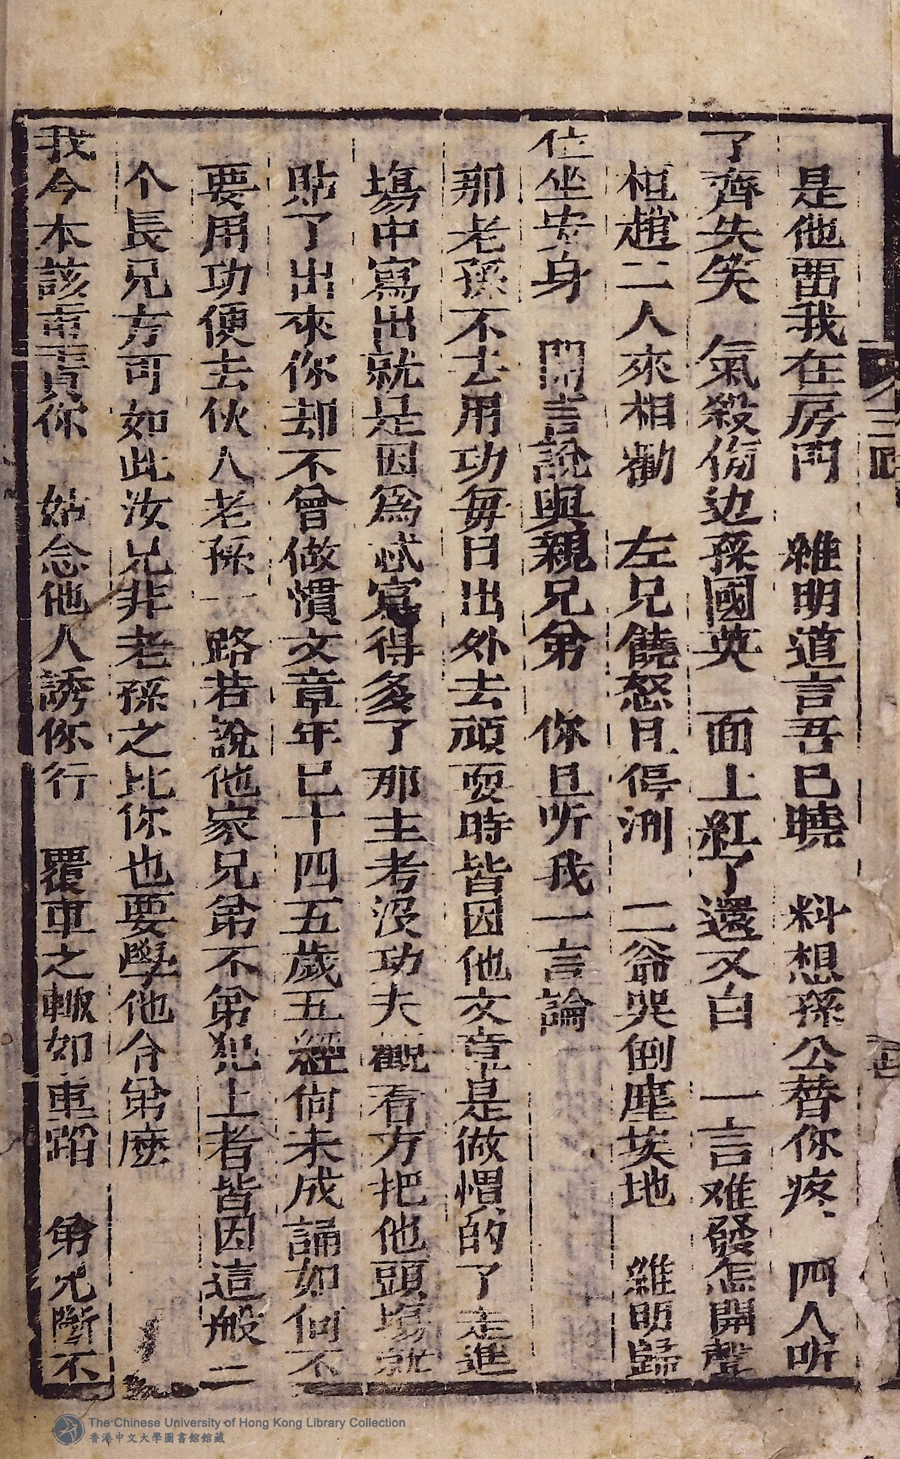 是他畱我在房門　雒明道言吾已曉　料想孫公替你疼　四人听
了齊失笑　氣殺俻边孫國英　面上紅了還又白　一言难發怎開聲
桓趙二人來相勸　左兄饒怒且停洌　二爺哭倒塵埃地　雒明歸
位坐安身　開言說與親兄弟　你且听我一言論
那老孫不去用功毎日出外去頑耍時皆因他文章是做慣的了走進
塲中寫出就是因爲忒寫得多了那主考沒功夫觀看方把他頭塲就
貼了出來你却不曾做慣文章年已十四五歲五經尙未成誦如何不
要用功便去伙人老孫一路若說他家兄弟不弟犯上者皆因這般二
个長兄方可如此汝兄非老孫之比你也要學他令弟庅
我今本該重責你　姑念他人誘你行　覆車之轍如重蹈　弟兄斷不
The Chinese University of Hong Kong Library Collection
香港中文大學圖書館館藏